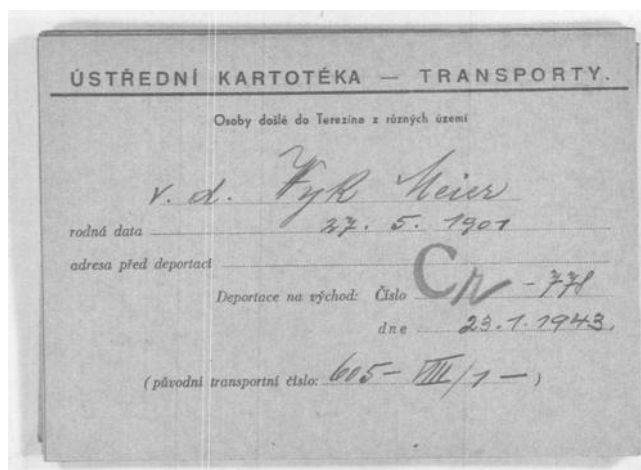 ÚSTŘEDNÍ KARTOTÉKA — TRANSPORTY.
Osoby došlé do Terezína z různých území
v. d. Wyk Meier
rodná data 27. 5. 1901
adresa před deportací
Deportace na východ: Číslo Cr -778
dne 23.1.1943.
(původní transportní číslo: 605- VIII/1 - )